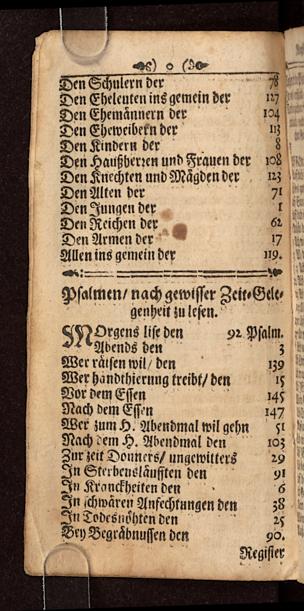 Den Schulern der 78
Den Eheleuten ins gemein der 127
Den Ehemännern der 104
Den Eheweibern der 113
Den Kindern der 8
Den Haußherren und Frauen der 108
Den Knechten und Mägden der 123
Den Alten der 71
Den Jungen der 1
Den Reichen der 62
Den Armen der 17
Allen ins gemein der 119.
Psalmen/ nach gewisser Zeit-Gele-
genheit zu lesen.
MOrgens lise den 92 Psalm.
Abends den 3
Wer räisen wil/ den 139
Wer handthierung treibt/ den 15
Vor dem Essen 145
Nach dem Essen 147
Wer zum H. Abendmal wil gehn 51
Nach dem H. Abendmal den 103
Zur zeit Donners/ ungewitters 29
In Sterbensläufften den 91
In Kranckheiten den 6
In schwären Anfechtungen den 38
In Todesnöhten den 25
Bey Begräbnussen den 90.
Register